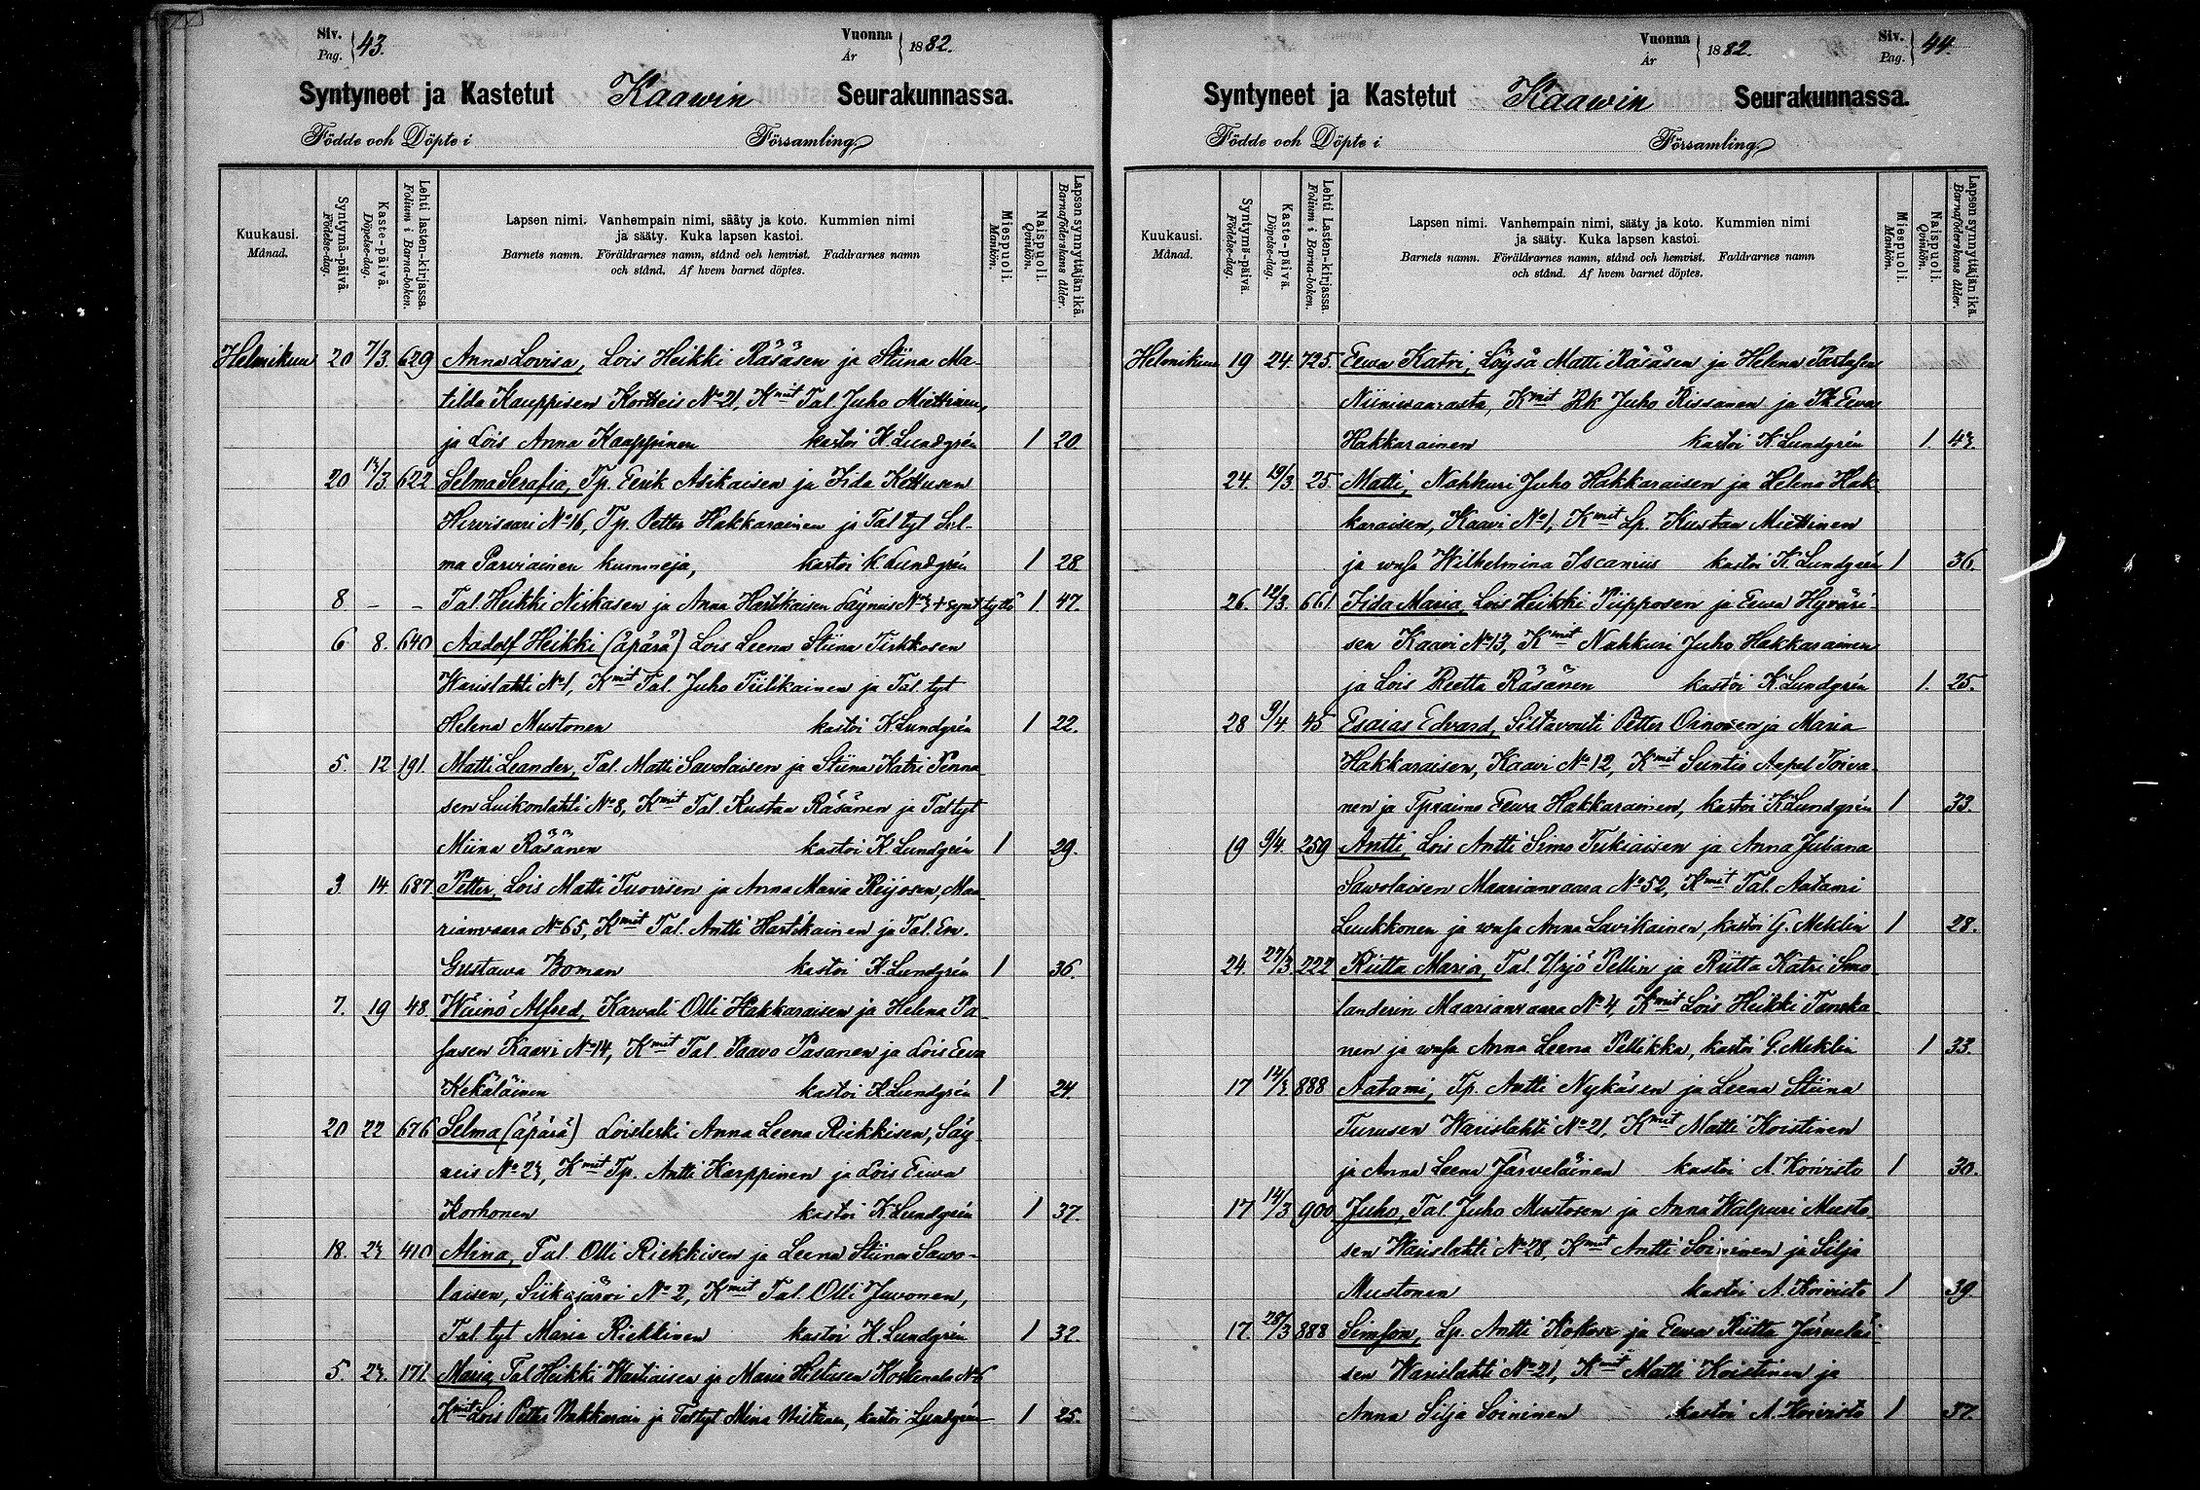 Siv. Pag. 43. Vuonna År 1882.
Syntyneet ja Kastetut Kaawin Seurakunnassa.
Födde och Döpte i Församling
Kuukausi. Månad.
Syntymä-päivä. Födelse-dag.
Kaste-päivä. Döpelse-dag.
Lehti lasten-kirjassa. Folium i Barna-boken.
Lapsen nimi. Vanhempain nimi, sääty ja koto. Kummien nimi
ja sääty. Kuka lapsen kastoi.
Barnets namn. Föräldrarnes namn, stånd och hemvist. Faddrarnes namn
och stånd. Af hvem barnet döptes.
Miespuoli. Mankön.
Naispuoli. Qvinkön.
Lapsen synnyttäjän ikä. Barnaföderskans ålder.
Helmikuu 20 7/3. 629 Anna Lovisa, Lois Heikki Räsäsen ja Stiina Ma-
tilda Kauppisen Kortteis No 21, Kmit Tal. Juho Miettinen,
ja Lois Anna Kauppinen kastoi K. Lundgrén 1 20.
20 622 Selma Serafia, Tp. Eerik Asikaisen ja Fida Kettusen
Hirvisaari No 16, Tp. Petter Hakkarainen ja Tal tyt Sel-
ma Parviainen kummeja, kastoi K Lundgrén 1 28
8 - - Tal. Heikki Niskasen ja Anna Hartikaisen + synt. tyttö 1. 47.
6 8. 640 Aadolf Heikki (äpärä) Lois Leena Stiina Tirkkosen
Warislahti No 1, Kmit Tal. Juho Tiilikainen ja Tal. tyt
Helena Mustonen kastoi K. Lundgrén 1 22.
5. 12 191. Matti Leander, Tal. Matti Savolaisen ja Stiina Katri Penna
sen Luikonlahti No 8, Kmit Tal. Kustaa Räsänen ja Tal tyt
Miina Räsänen kastoi K. Lundgrén 1 29.
3 14. 687. Petter, Lois Matti Tuovisen ja Anna Maria Reijosen, Maa
rianvaara No 65, Kmit Tal. Antti Hartikainen ja Tal. Em.
Gustawa Boman kastoi K. Lundgrén 1 36.
7. 19 48 Wäinö Alfred, Karvali Olli Hakkaraisen ja Helena Pa
sasen Kaavi No 14, Kmit Tal. Paavo Pasanen ja Lois Eeva
Kekäläinen kastoi K. Lundgrén 1 24.
20 22 676 Selma (äpärä) Loisleski Anna Leena Riekkisen, Säy
neis Kmit Tp. Antti Karppinen ja Lois Eewa
Korhonen kastoi K. Lundgrén 1 37.
18. 410 Alina, Tal. Olli Riekkisen ja Leena Stiina Sawo-
laisen, Siikajärvi No 2, Kmit Tal. Olli Juvonen,
Tal. tyt Maria Riekkinen kastoi K. Lundgrén 1 32.
5 171. Maria, Tal Heikki Wartiaisen ja Maria Hiltusen
Kmit Lois Petter ja Tal tyt Miina kastoi Lundgrén 1 25.
Vuonna År 1882. Siv. Pag. 44.
Syntyneet ja Kastetut Kaawin Seurakunnassa.
Födde och Döpte i Församling
Kuukausi. Månad.
Syntymä-päivä. Födelse-dag.
Kaste-päivä. Döpelse-dag.
Lehti Lasten-kirjassa. Folium i Barna-boken.
Lapsen nimi. Vanhempain nimi, sääty ja koto. Kummien nimi
ja sääty. Kuka lapsen kastoi.
Barnets namn. Föräldrarnes namn, stånd och hemvist. Faddrarnes namn
och stånd. Af hvem barnet döptes.
Miespuoli. Mankön.
Naispuoli. Qvinkön.
Lapsen synnyttäjän ikä. Barnaföderskans ålder.
Helmikuu 19 24. 725. Eewa Katri, Löysä Matti Räsäsen ja Helena
Niinivaarasta, Kmit Rk Juho Rissanen ja Eewa
Hakkarainen kastoi K. Lundgrén 1.
24. 19/3. 25. Matti, Nahkuri Juho Hakkaraisen ja Helena Hak
karaisen, Kaavi No 1, Kmit Lp. Kustaa Miettinen
ja Wilhelmina Iscanius kastoi K. Lundgrén 1 36.
26. 12/3. 661. Fida Maria, Lois Heikki Piipposen ja Eewa Hyväri
sen Kaavi No 13, Kmit Nahkuri Juho Hakkarainen
ja Lois Reetta Räsänen kastoi K. Lundgrén 1. 25.
28 9/4. 45 Esaias Edvard, Siltavouti Petter Oinonen ja Maria
Hakkaraisen, Kaavi No 12, Kmit Suntio Aapel Toiva
nen ja Eewa Hakkarainen, kastoi K Lundgrén 1 33.
19 9/4. 259 Antti, Lois Antti Simo Tukiaisen ja Anna Juliana
Sawolaisen Maarianvaara No 52, Kmit Tal. Aatami
Luukkonen ja Anna Lavikainen, kastoi G. Meklin 1 28.
24. 27/3. 222 Riitta Maria, Tal. Yrjö Pellin ja Riitta Katri Smo
landerin Maarianvaara No 4, Kmit Lois Heikki Tanska
nen ja Anna Leena Pellikka, kastoi G. Meklin 1 33.
17 14/3 888 Aatami, Tp. Antti Nykäsen ja Leena Stiina
Turusen Warislahti No 21, Kmit Matti Koistinen
ja Anna Leena Järveläinen kastoi A. Koivisto 1 30.
17 14/3 900 Juho, Tal. Juho Mustosen ja Anna Walpuri Musto
sen Warislahti No 28, Kmit Antti Soininen ja Silja
Mustonen kastoi A. Koivisto 1 39.
17. 888 Simson, Lp. Antti ja Eewa Riitta Järveläi
sen Warislahti No 21, Kmit Matti Koistinen ja
Anna Silja Soininen kastoi A. Koivisto 1 37.